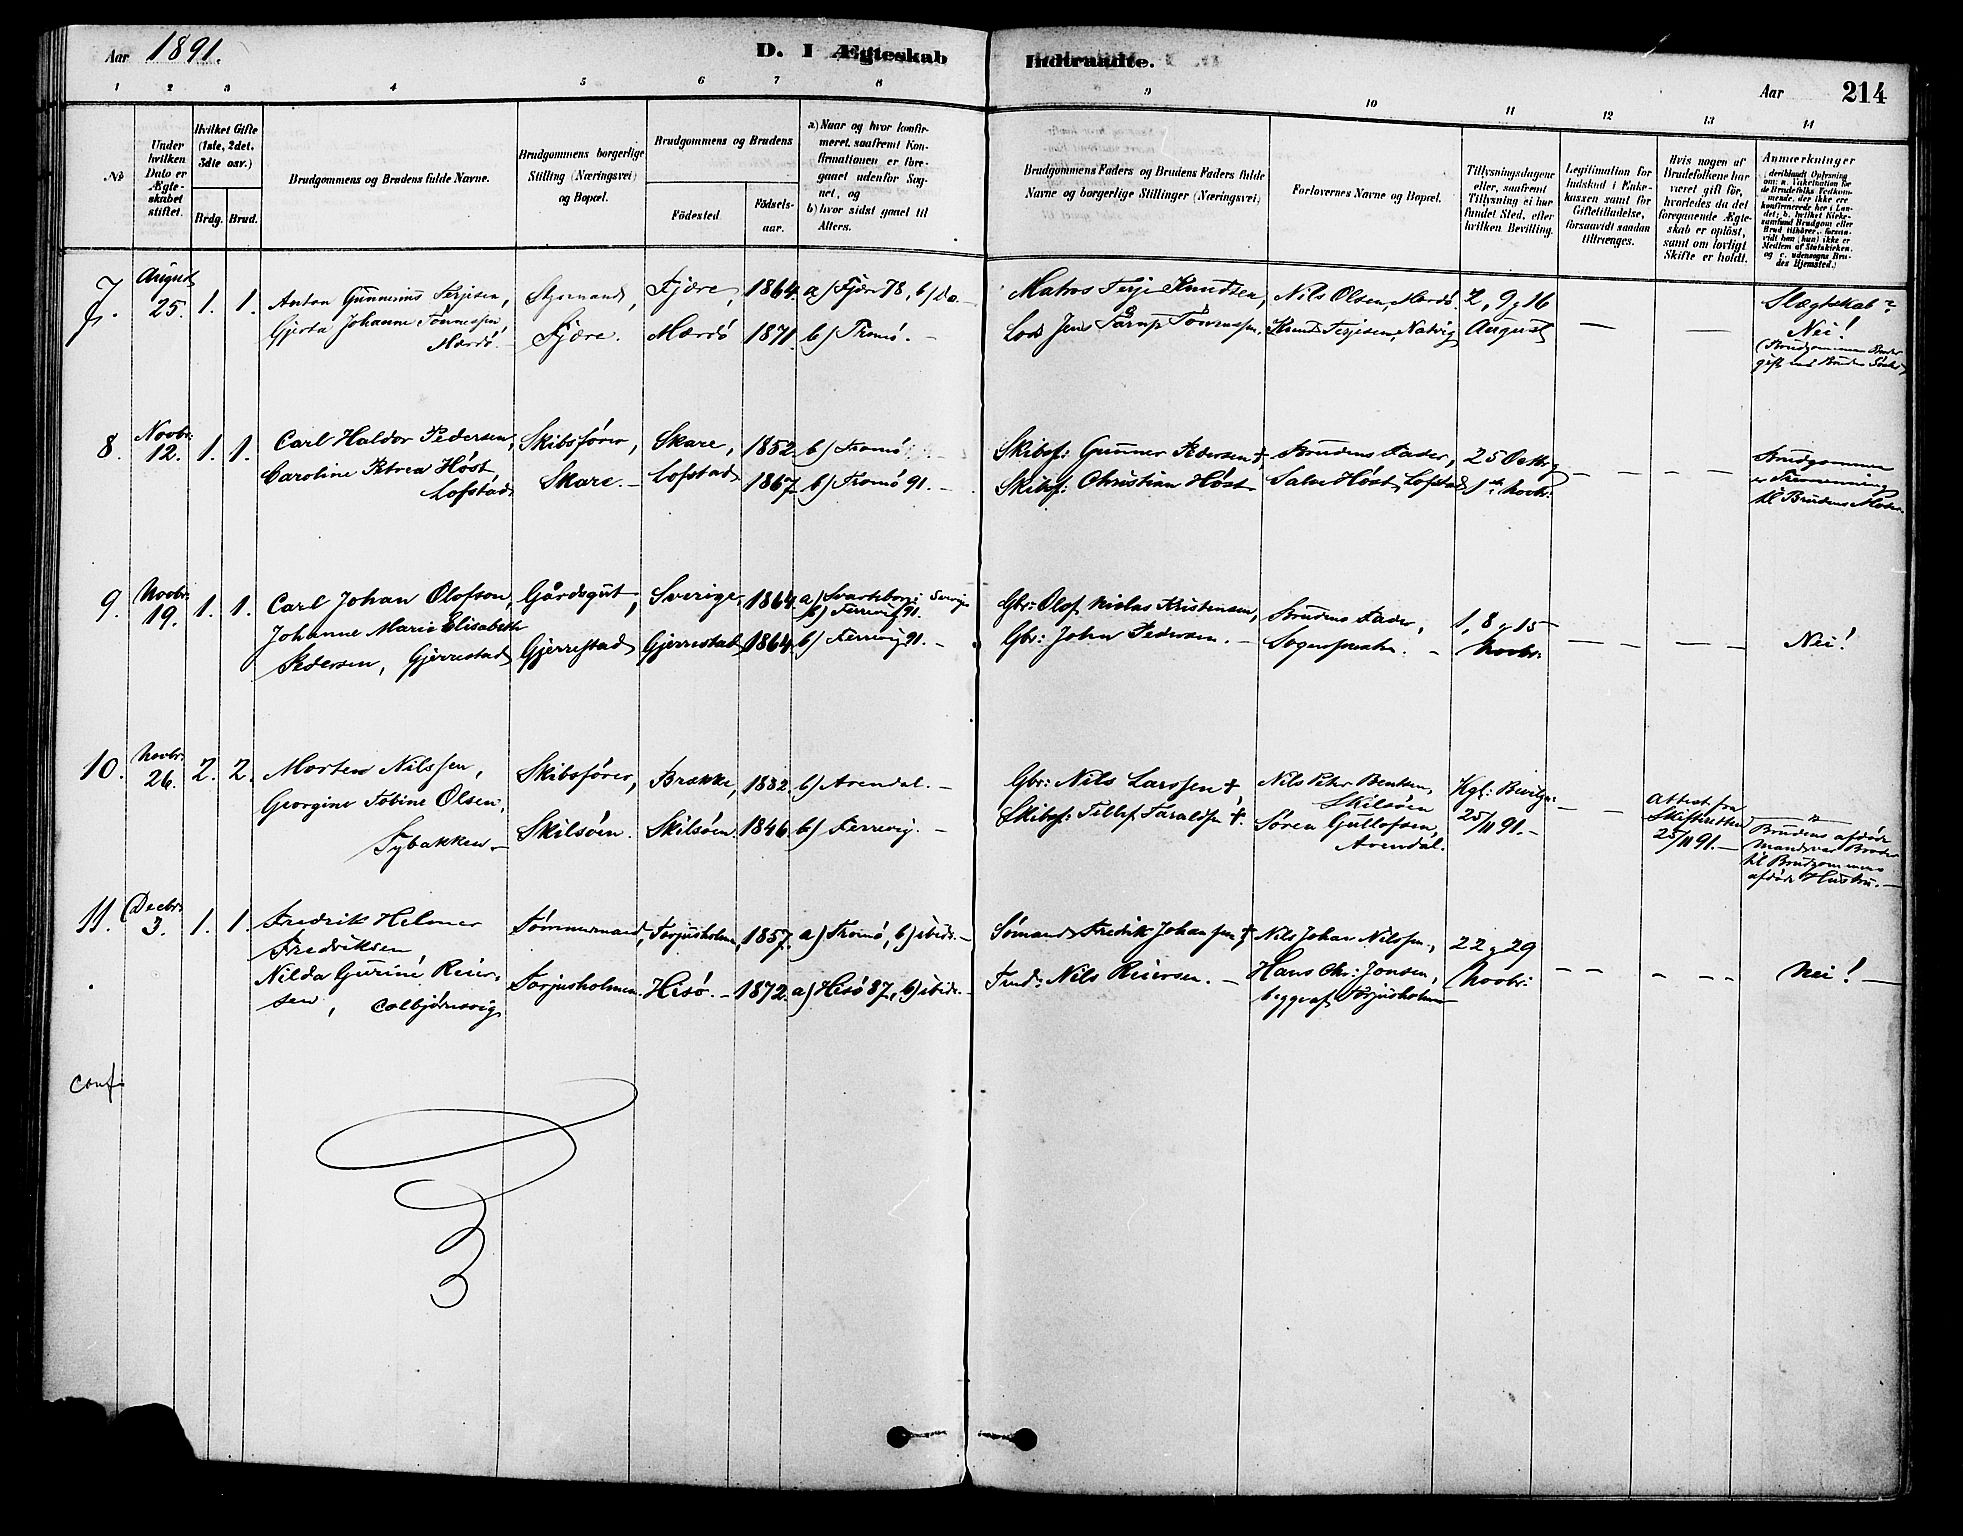 Aar 1891. D. I Ægteskab Indtraadte. Aar 214
1 2 3 4 5 6 7 8 9 10 11 12 13 14
No
Under hvilken Dato er Ægteskabet stiftet.
Hvilket Gifte (1ste, 2det, 3die osv.)
Brdg. Brud.
Brudgommens og Brudens fulde Navne.
Brudgommens borgerlige Stilling (Næringsvei) og Bopæl.
Brudgommens og Brudens
Fødested. Fødselsaar.
a) Naar og hvor konfirmeret, saafremt Konfirmationen er foregaaet udenfor Sognet, og
b) hvor sidst gaaet til Alters.
Brudgommens Faders og Brudens Faders fulde Navne og borgerlige Stillinger (Næringsvei)
Forlovernes Navne og Bopæl.
Tillysningsdagene eller, saafremt Tillysning ei har fundet Sted, efter hvilken Bevilling.
Legitimation for Indskud i Enkekassen samt for Giftetilladelse, forsaavidt saadan tiltrænges.
Hvis nogen af Brudefolkene har været gift før, hvorledes da det foregaaende Ægteskab er opløst, samt om lovligt Skifte er holdt.
Anmærkninger
7. August 25. 1. 1. Anton Gunnerius Terjesen, Styrmand, Fjære, 1864. a) Fjære 78, b) Do — Matros Terje Knudsen, Nils Olsen, Mærdö. 2, 9 og 16 Slægtskab?
Gjerta Johanne Tönnessen, Mærdö. Fjære. Mærdö 1871. b) Tromö. — Lods Jens Tönnessen. Knud Terjesen, Natvig August — — Nei!
8. Novbr: 12. 1. 1. Carl Haldor Pedersen, Skibsfører, Skare, 1852. b) Tromö Skibsf: Gunner Pedersen †, Brudens Fader, 25 Octbr og Brudgommen
Caroline Petrea Höst Lofstad Skare. — Lofstad 1867. b) Tromö 91. — Skibsf: Christian Höst Höst, Lofstad 1ste Novbr: — — — — er til Brudens Moder.
9. Novbr: 19. 1. 1. Carl Johan Olofson, Gårdsgut, Sverige, 1864. a) Svarteborg i Sverige b) Færrvig 91. Gbr: Olof Niclas Kristensen, Brudens Fader, 1, 8 og 15
Johanne Marie Elisabeth Pedersen, Gjerrestad Gjerrestad Gjerrestad 1864. b) Færrvig 91. — Gbr: John Pedersen. — — Novbr: — — — — Nei!
10. Novbr: 26. 2. 2. Morten Nilssen, Skibsfører, Brække, 1832. b) Arendal. — Gbr: Nils Larssen †, Nils Peter Bentsen, Skilsöen Kgl: Bevilgn: — — Attest fra Skifteretten 25/11 91. —
Georgine Tobine Olsen, Tybakken — Skilsöen. Skilsöen. 1846. b) Færrvig. — Skibsf: Tellef Taraldsen †. Sören Gullofsen, Arendal. 25/11 91. — Brudens afdöde Mand var Broder til Brudgommens afdöde Hustru. —
11. Decbr: 3. 1. 1. Fredrik Helmer Fredriksen Tömmermand, Torjusholmen, 1857. a) Tromö, b) ibid. — Sömand Fredrik Johansen †, Nils Johan Nilssen, 22 og 29
Nilda Gurine Reiersen, Colbjörnsvig Torjusholmen. Hisö. — 1872. a) Hisö 87, b) ibid. — Nils Reiersen. — Hans Chr: Jonsen, begge af Torjusholmen Novbr: — — — — Nei! —
Conf: